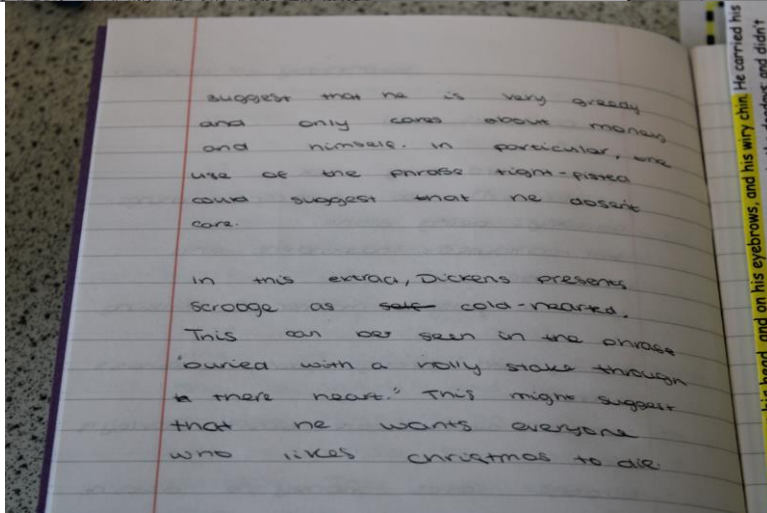 suggest that he is very greedy
and only cares about money
and himself. In particular, the
use of the phrase tight-fisted
could suggest that he dosent
care.
In this extract, Dickens presents
scrooge as cold-hearted.
This can be seen in the phrase
'buried with a holly stake through
there heart." This might suggest
that he wants everyone
who likes christmas to die.
his head, and on his eyebrows, and his wiry chin. He carried his
and didn't